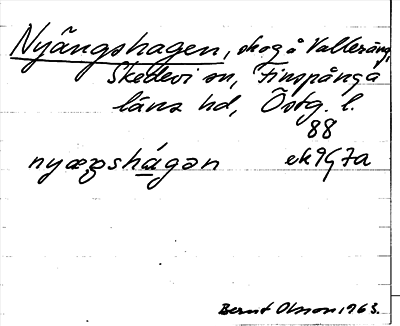 Nyängshagen, skog å Valleräng,
Skedevi sn, Finspånga
läns hd, Östg. l.
88
nyæŋshágən ek 9G7a
Bernt Olsson 1963.